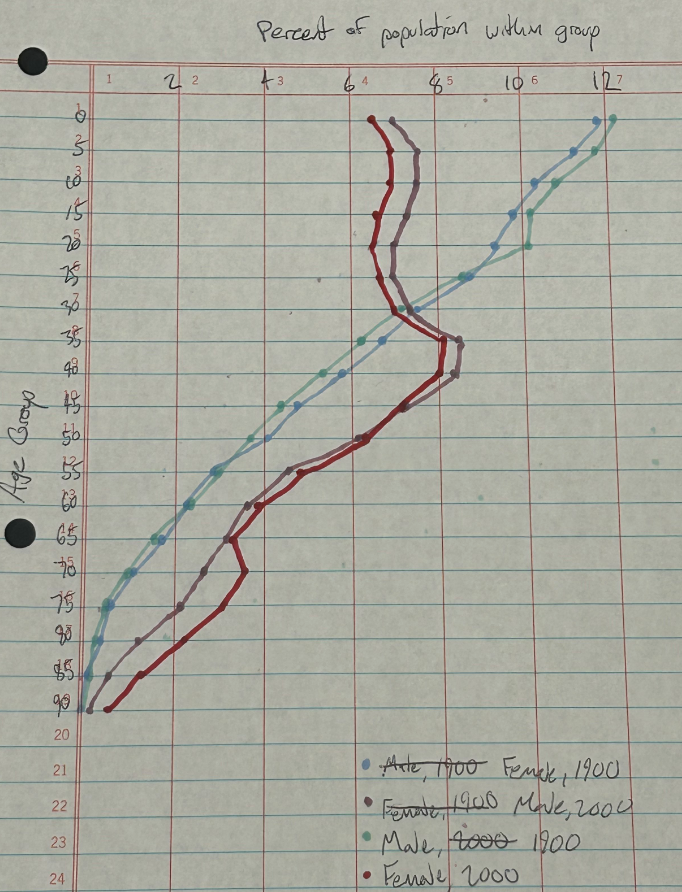 Percent of population within group
1 2 2 4 3 6 4 8 5 10 6 12 7
0
5
10
15
20
25
30
35
40
45
50
55
60
65
70
75
80
85
90
20
21
22
23
24
Age Group
Male, 1900 Female, 1900
Female, 1900 Male, 2000
Male, 2000 1900
Female 2000